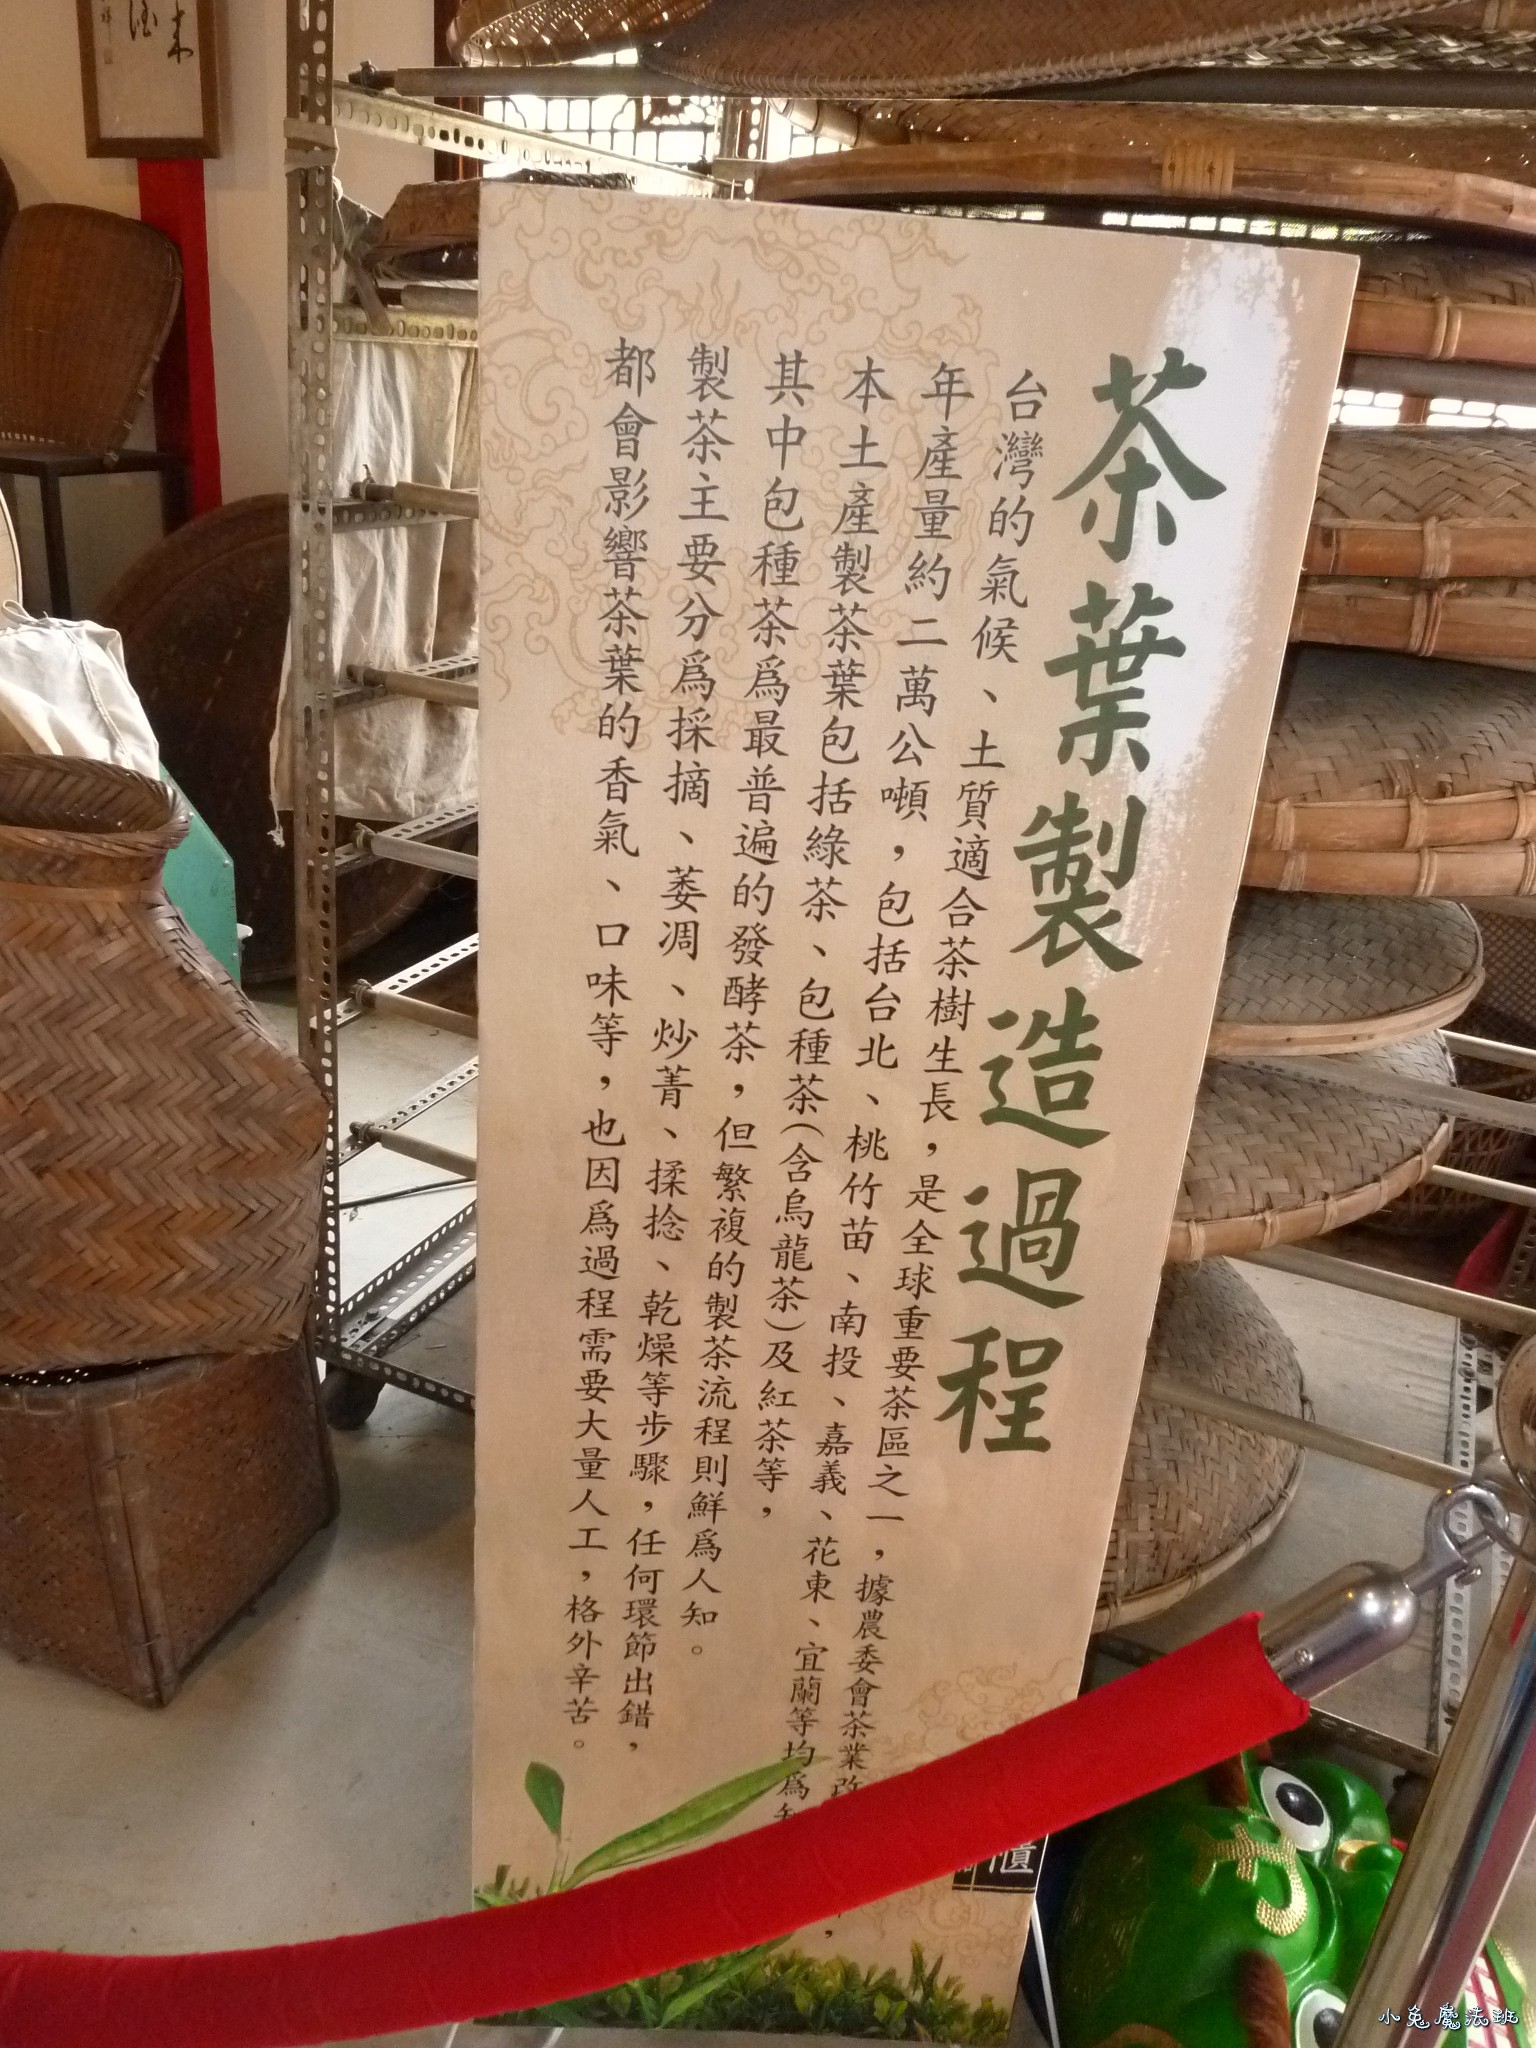 茶葉製造過程
台灣的氣候、土質適合茶樹生長，是全球重要茶區之一，據農委會茶業改
年產量約二萬公噸，包括台北、桃竹苗、南投、嘉義、花東、宜蘭等均為知
本土產製茶葉包括綠茶、包種茶(含烏龍茶)及紅茶等，
其中包種茶為最普遍的發酵茶，但繁複的製茶流程則鮮為人知。
製茶主要分為採摘、萎凋、炒菁、揉捻、乾燥等步驟，任何環節出錯，
都會影響茶葉的香氣、口味等，也因為過程需要大量人工，格外辛苦。
小兔魔法班